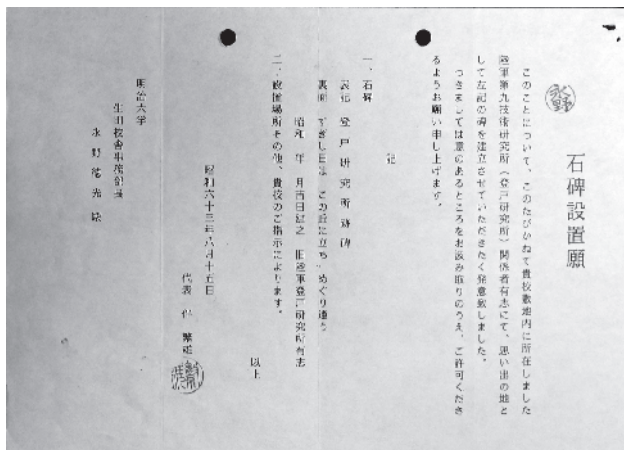 石碑設置願
永野
このことについて、このたびかねて貴校敷地内に所在しました
陸軍第九技術研究所(登戸研究所)関係者有志にて、思い出の地と
して左記の碑を建立させていただきたく発意致しました。
つきましては意のあるところをお汲み取りのうえ、ご許可くださ
るようお願い申し上げます。
記
一、石碑
表記 登戸研究所跡碑
裏面 すぎし日は この丘に立ち めぐり逢う
昭和 年 月吉日建之 旧陸軍登戸研究所有志
二、設置場所その他、貴校のご指示によります。
以上
昭和六十三年八月十五日
代表 伴 繁雄
明治大学
生田校舎事務部長
永野 光 殿